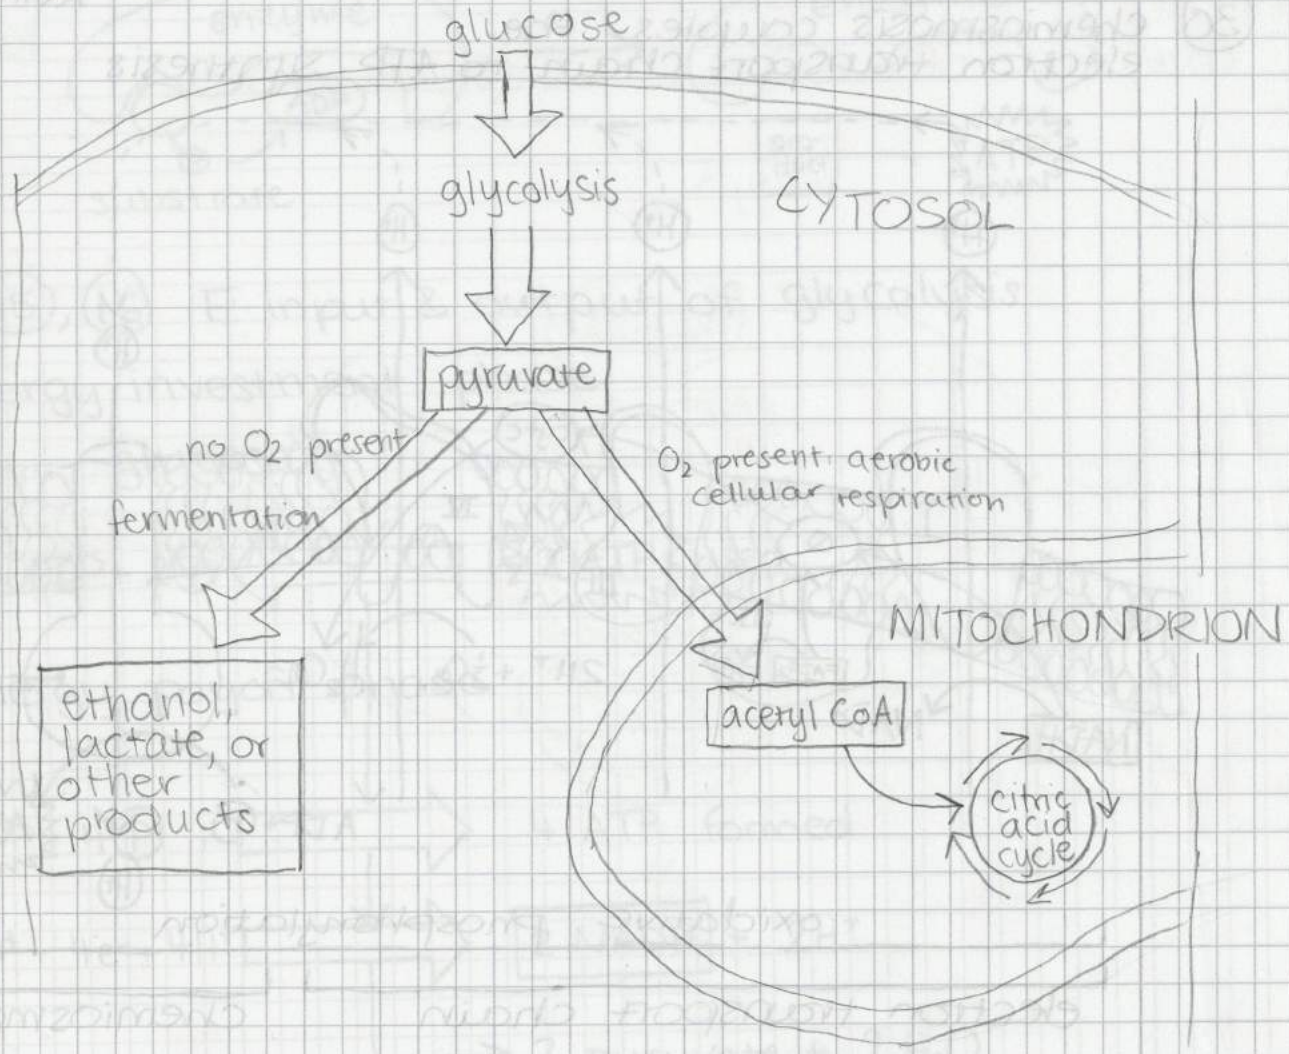 glucose
glycolysis
CYTOSOL
pyruvate
no O₂ present
fermentation
O₂ present: aerobic
cellular respiration
MITOCHONDRION
ethanol,
lactate, or
other
products
acetyl CoA
citric
acid
cycle